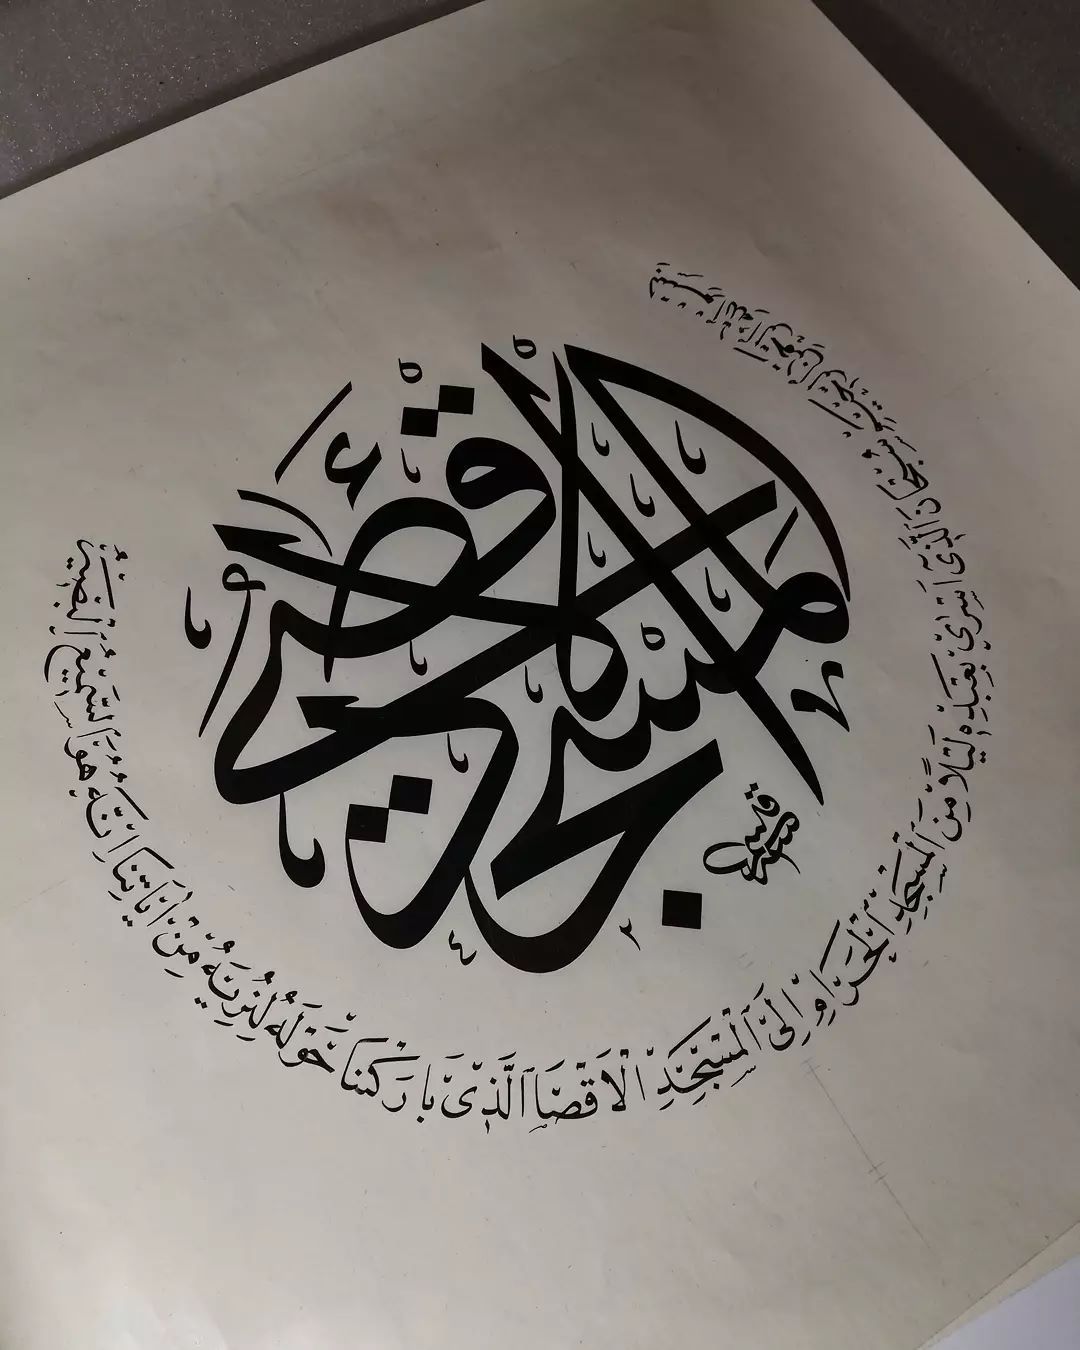 المسجد الأقصى
بسم الله الرحمن الرحيم سُبْحَانَ الَّذِي أَسْرَى بِعَبْدِهِ لَيْلًا مِنَ الْمَسْجِدِ الْحَرَامِ إِلَى الْمَسْجِدِ الْأَقْصَا الَّذِي بَارَكْنَا حَوْلَهُ لِنُرِيَهُ مِنْ آيَاتِنَا إِنَّهُ هُوَ السَّمِيعُ الْبَصِيرُ